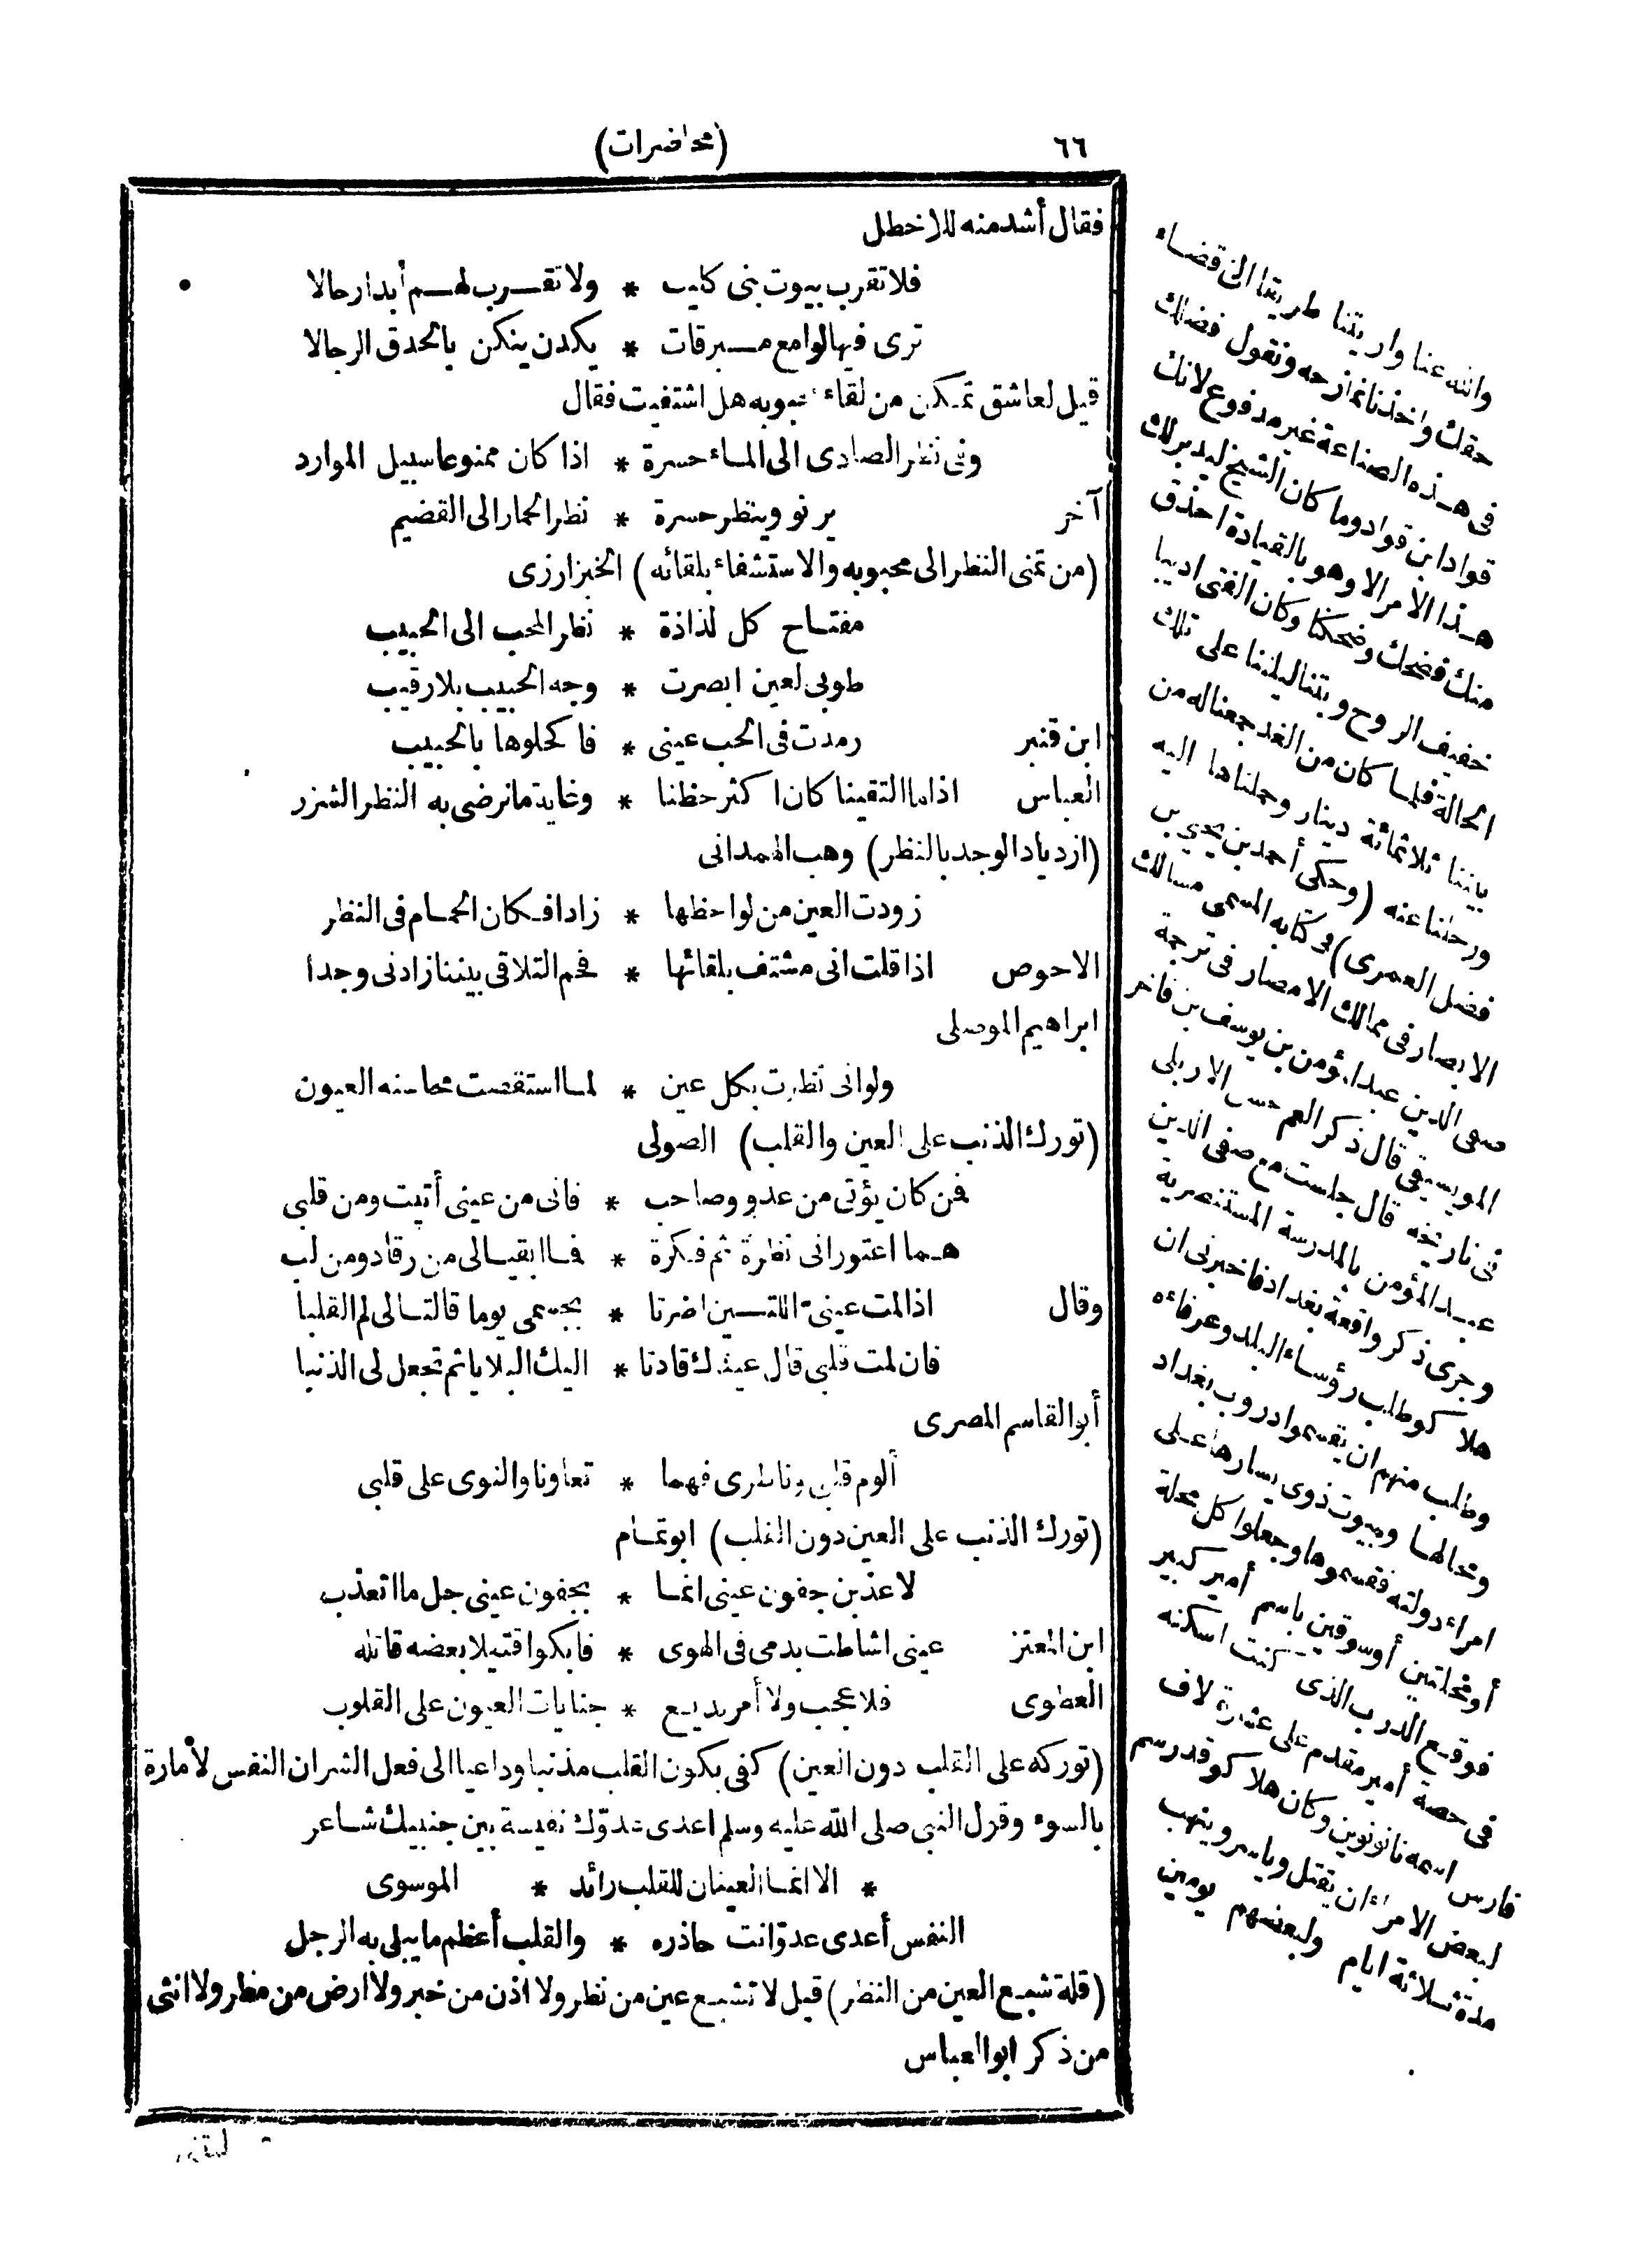 ٦٦
(محاضرات)
فقال أشد منه للاخطل
فلا تقرب بيوت بنى كليب * ولا تقرب لهم أبدا رحالا
ترى فيها لوامع مبرقات * يكدن ينكن بالحدق الرجالا
قيل لعاشق تمكن من لقاء محبوبه هل اشتفيت فقال
وفى نظر الصادى الى الماء حسرة * اذا كان ممنوعا سبيل الموارد
آخر يرنو وينظر حسرة * نظر الحمار الى القضيم
(من تمنى النظر الى محبوبه والاستشفاء بلقائه) الخبزارزى
مفتاح كل لذاذة * نظر المحب الى الحبيب
طوبى لعين ابصرت * وجه الحبيب بلا رقيب
ابن قنبر رمدت فى الحب عينى * فا كحلوها بالحبيب
العباس اذا ما التقينا كان اكثر حظنا * وغاية ما نرضى به النظر الشزر
(ازدياد الوجد بالنظر) وهب الهمدانى
زودت العين من لواحظها * زادا فكان الحمام فى النظر
الاحوص اذا قلت انى مشتف بلقائها * فحم التلاقى بيننا زادنى وجدا
ابراهيم الموصلى
ولوانى نظرت بكل عين * لما استقصت محاسنه العيون
(تورك الذنب على العين والقلب) الصولى
فمن كان يؤتى من عدو وصاحب * فانى من عينى أتيت ومن قلبى
هما اعتورانى نظرة ثم فكرة * فما ابقيا لى من رقاد ومن لب
وقال اذا لمت عينى اللتين اضرتا * بجسمى يوما قالتا لى لم القلبا
فان لمت قلبى قال عيناك قادتا * اليك البلايا ثم تجعل لى الذنبا
أبو القاسم المصرى
ألوم قلبى وناظرى فهما * تعاونا والنوى على قلبى
(تورك الذنب على العين دون القلب) ابو تمام
لاعذبن جفون عينى انما * بجفون عينى جل ما اتعذب
ابن المعتز عينى اشاطت بدمى فى الهوى * فا بكوا قتيلا بعضه قاتله
العطوى فلا عجب ولا أمر بديع * جنايات العيون على القلوب
(توركه على القلب دون العين) كفى بكون القلب مذنبا وداعيا الى فعل الشر ان النفس لأمارة
بالسوء وقول النبى صلى الله عليه وسلم اعدى عدوّك نفيسة بين جنبيك شاعر
* الا انما العينان للقلب رائد * الموسوى
النفس أعدى عدوّ انت حاذره * والقلب أعظم ما يبلى به الرجل
(قلة شبع العين من النظر) قيل لا تشبع عين من نظر ولا اذن من خبر ولا ارض من مطر ولا انثى
من ذكر ابو العباس
والله عنا واريتنا طريقا الى قضاء
حقك واخذنا نمازحه ونقول فضلك
فى هذه الصناعة غير مدفوع لانك
قواد ابن قواد وما كان الشيخ ليدبر لك
هذا الامر الا وهو بالقيادة احذق
منك فضحك وضحكنا وكان الفتى اديبا
خفيف الروح وبتنا ليلتنا على تلك
الحالة فلما كان من الغد جمعنا له من
بيننا ثلاثمائة دينار وحملناها اليه
ورحلنا عنه (وحكى أحمد بن يحيى بن
فضل العمرى) فى كتابه المسمى مسالك
الابصار فى ممالك الامصار فى ترجمة
صفى الدين عبد المؤمن بن يوسف بن فاخر
الموسيقى قال ذكر العز حسن الاربلى
فى تاريخه قال جلست مع صفى الدين
عبد المؤمن بالمدرسة المستنصرية
وجرى ذكر واقعة بغداد فاخبرنى ان
هلاكو طلب رؤساء البلد وعرفاءه
وطلب منهم ان يقسموا دروب بغداد
ومحالها وبيوت ذوى يسارها على
امراء دولته فقسموها وجعلوا كل محلة
أو محلتين أو سوقين باسم أمير كبير
فوقع الدرب الذى كنت اسكنه
فى حصة أمير مقدم على عشرة الاف
فارس اسمه نانونوين وكان هلاكو قد رسم
لبعض الامراء ان يقتل وياسر وينهب
مدة ثلاثة ايام ولبعضهم يومين